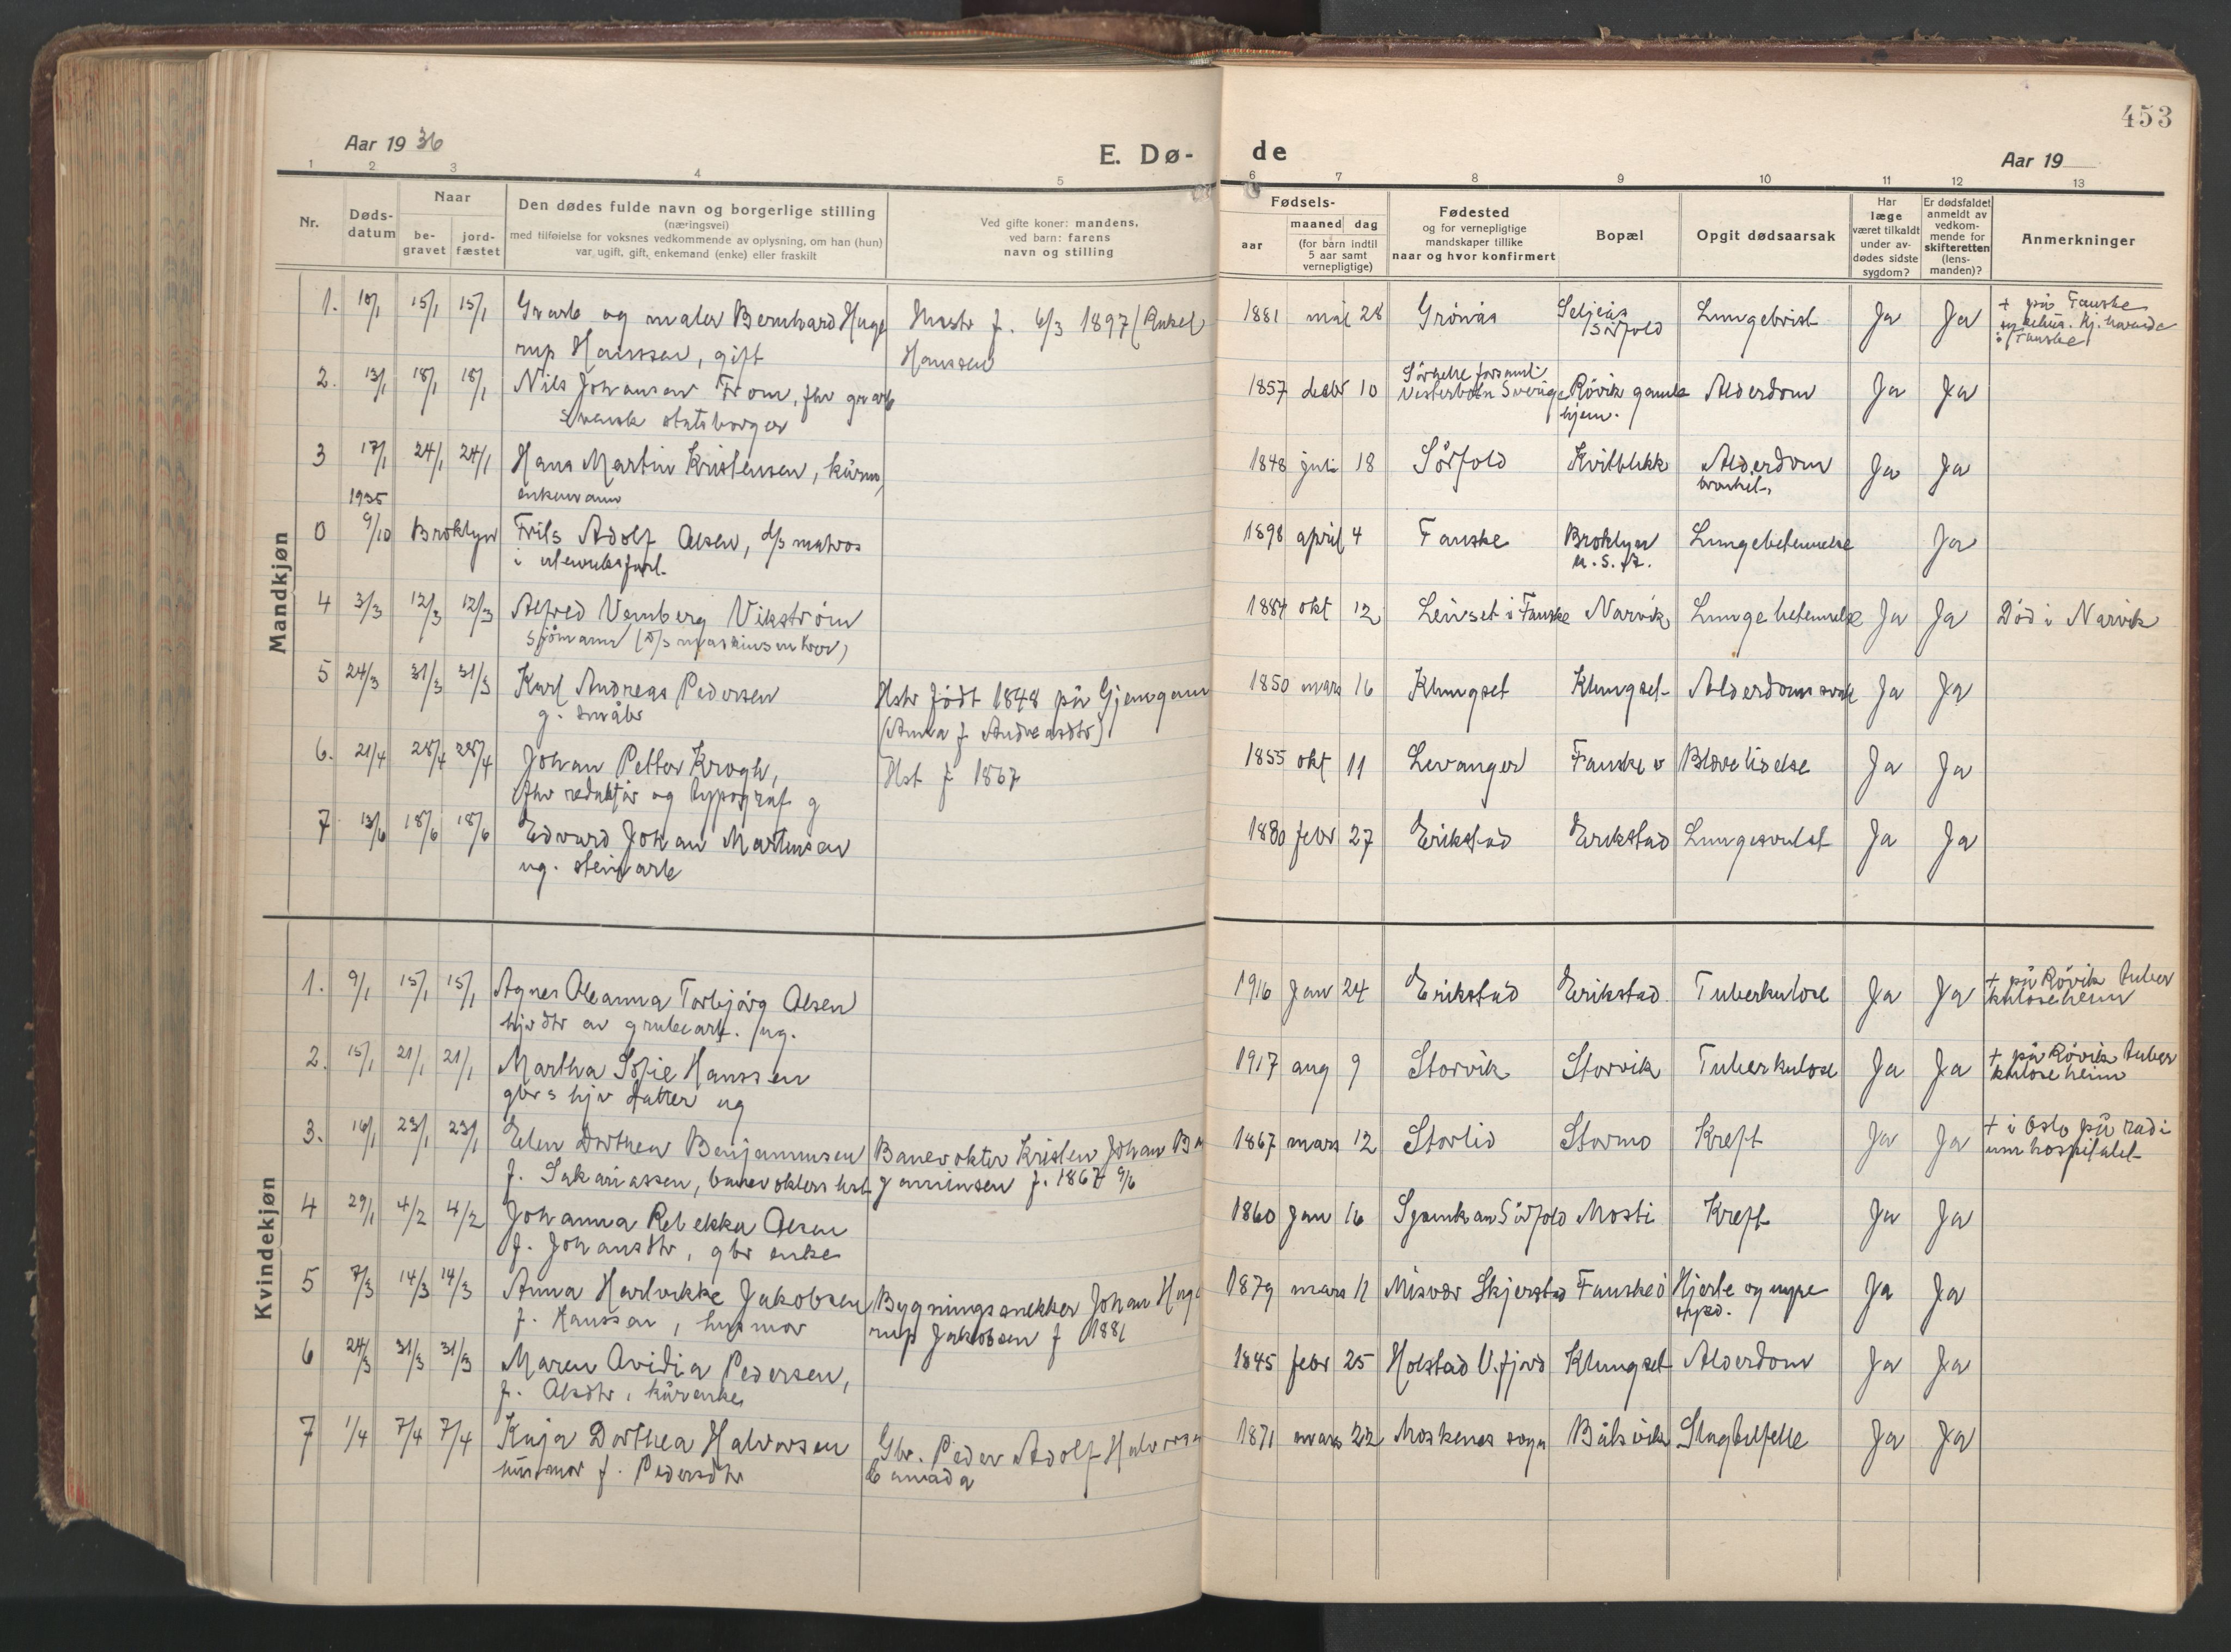 453
Aar 1936
E. Dø-
de
Aar 19
1 2 3 4 5 6 7 8 9 10 11 12 13
Nr.
Døds-
datum
Naar
be-
gravet
jord-
fæstet
Den dødes fulde navn og borgerlige stilling
(næringsvei)
med tilføielse for voksnes vedkommende av oplysning, om han (hun)
var ugift, gift, enkemand (enke) eller fraskilt
Ved gifte koner: mandens,
ved barn: farens
navn og stilling
Fødsels-
aar
maaned dag
(for barn indtil
5 aar samt
vernepligtige)
Fødested
og for vernepligtige
mandskaper tillike
naar og hvor konfirmert
Bopæl
Opgit dødsaarsak
Har
læge
været tilkaldt
under av-
dødes sidste
sygdom?
Er dødsfaldet
anmeldt av
vedkom-
mende for
skifteretten
(lens-
manden)?
Anmerkninger
Mandkjøn
1. 10/1 15/1 15/1 Grarb og maler Bernhard Hage Hustr f. 6/3 1897 (Rakel 1881 mai 28 Grönås Seljeås Lungebrist Ja Ja + på Fauske
rup Hanssen, gift Hanssen Sörfold sykehus.
i Fauske
2. 13/1 18/1 18/1 Nils Johansen From, fhv grarb 1857 debr 10 Sörsele forsaml. Rövik gamle Alderdom Ja Ja
svensk statsborger Vesterbotn Sverige hjem.
3 17/1 24/1 24/1 Hans Martin Kristensen, kårm, 1848 juli 18 Sörfold Kvitblikk Alderdom Ja Ja
enkemann bronkit.
1935
0 9/10 Broklyn Frits Adolf Olsen, d/s matros 1898 april 4 Fauske Broklyn Lungebetennelse Ja
i utenriksfart. U.S.A.
4 3/3 12/3 12/3 Alfred Vemberg Vikström 1884 okt 12 Leivset i Fauske Narvik Lungebetennelse Ja Ja Död i Narvik
sjömann
5 24/3 31/3 31/3 Karl Andreas Pedersen Hstr födt 1848 på Gjemgam 1850 mars 16 Klungset Klungset Alderdomssvak Ja Ja
g. småbr (Anna f. Andreasdtr)
6. 21/4 28/4 28/4 Johan Petter Krogh, Hst f 1867 1855 okt 11 Levanger Fauske v Blærelidelse Ja Ja
fhv redaktör og typograf g
7 13/6 18/6 18/6 Edvard Johan Martinsen 1880 febr 27 Erikstad Erikstad Lungesvulst Ja Ja
ug. steinarb
Kvindekjøn
1. 9/1 15/1 15/1 Agnes Oleanna Torbjörg Olsen 1916 Jan 24 Erikstad Erikstad Tuberkulose Ja Ja + på Rövik tuber
hjv dtr av grubearb. ug. kuloseheim
2. 15/1 21/1 21/1 Martha Sofie Hanssen 1917 aug 9 Storvik Storvik Tuberkulose Ja Ja + på Rövik tuber
gbrs hjv datter ug kuloseheim
3. 16/1 23/1 23/1 Elen Dorthea Benjaminsen Banevokter Kristen Johan Ben 1867 mars 12 Storlid Stormo Kreft Ja Ja + i Oslo på radi
f. Sakariassen, banevokters hst jaminsen f. 1867 9/6 umhospitalet
4 29/1 4/2 4/2 Johanna Rebekka Olsen 1860 Jan 16 Sörfold Mosti Kreft Ja Ja
f. Johansdtr, gbr enke
5 7/3 14/3 14/3 Anna Hartvikke Jakobsen Bygningssnekker Johan Hage 1879 mars 11 Misvær Skjerstad Fauske ö Hjerte og nyre Ja Ja
f. Hanssen, husmor rup Jakobsen f 1881 syked.
6 24/3 31/3 31/3 Maren Ovidia Pedersen, 1845 febr 25 Holstad V.fjord Klungset Alderdom Ja Ja
f. Olsdtr, kårenke
7 1/4 7/4 7/4 Kaja Dorthea Halvorsen Gbr. Peder Adolf Halvorsen 1871 mars 22 Moskenes sogn Bålsvik Slagtilfelle Ja Ja
husmor f. Pedersdtr Canada